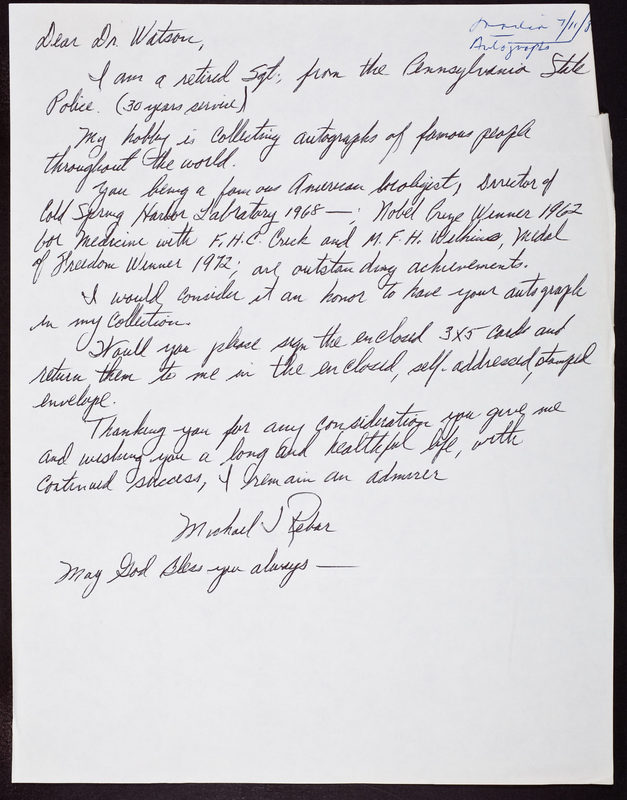 7/11/8
Autographs
Dear Dr. Watson,
I am a retired Sgt, from the Pennsylvania State
Police. (30 years service)
My hobby is collecting autographs of famous people
throughout the world.
You being a famous American biologist, Director of
Cold Spring Harbor Labratory 1968 —; Nobel Prize Winner 1962
for Medicine with F.H.C. Crick and M.F.H. Wilkins, Medal
of Freedom Winner 1972; are outstanding achievements.
I would consider it an honor to have your autograph
in my collection.
Would you please sign the enclosed 3x5 cards and
return them to me in the enclosed, self-addressed, stamped
envelope.
Thanking you for any consideration you give me
and wishing you a long and healthful life, with
continued success, I remain an admirer
Michael J Rebar
May God Bless you always —